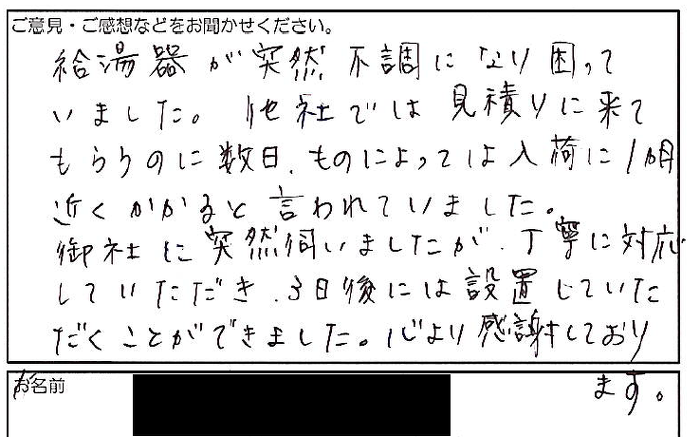 ご意見・ご感想などをお聞かせください。
給湯器が突然不調になり困って
いました。他社では見積りに来て
もらうのに数日、ものによっては入荷に1ヵ月
近くかかると言われていました。
御社に突然伺いましたが、丁寧に対応
していただき、3日後には設置していた
だくことができました。心より感謝しており
お名前
ます。